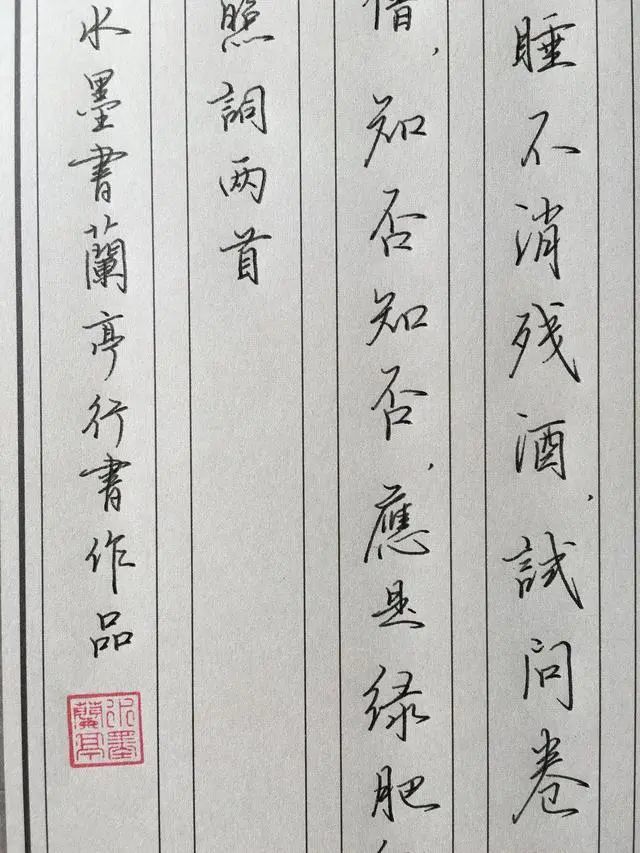 睡不消残酒,試问卷
惜,知否知否,應是绿肥
照詞两首
水墨書蘭亭行書作品
水墨蘭亭